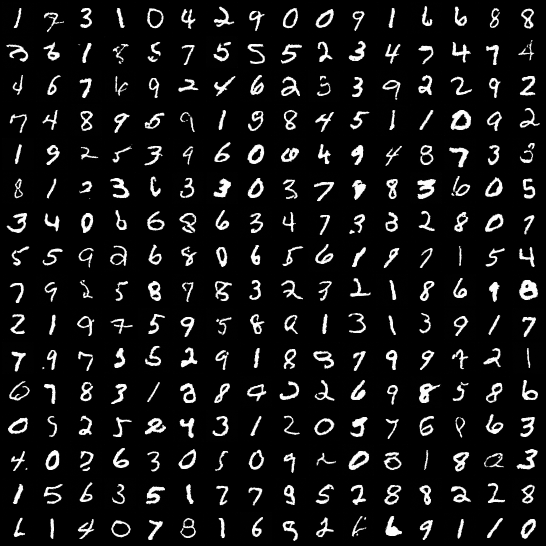 1 7 3 1 0 4 2 9 0 0 9 1 6 6 8 8
3 6 1 8 5 7 5 5 5 2 3 4 7 4 7 4
4 6 7 6 9 2 4 6 2 5 3 9 2 2 9 2
7 4 8 9 5 9 1 9 8 4 5 1 1 0 9 2
1 9 2 5 3 9 6 0 0 4 9 4 8 7 3 3
8 1 2 3 6 3 3 0 3 7 9 8 3 6 0 5
3 4 0 6 6 8 6 3 4 7 3 3 2 8 0 7
5 5 9 2 6 8 0 6 5 6 1 9 7 1 5 4
7 9 8 5 8 7 8 3 2 3 2 1 8 6 9 8
2 1 9 7 5 9 5 8 2 1 3 1 3 9 1 7
7 9 7 3 5 2 9 1 8 9 7 9 9 7 2 1
6 7 8 3 1 8 8 9 2 2 6 9 8 5 8 6
0 5 2 5 2 4 3 1 2 0 5 7 6 9 6 3
4 0 2 6 3 0 5 0 9 2 0 8 1 8 2 3
1 5 6 3 5 1 7 7 9 5 2 8 8 2 2 8
6 1 4 0 7 8 1 6 9 2 6 6 9 1 1 0